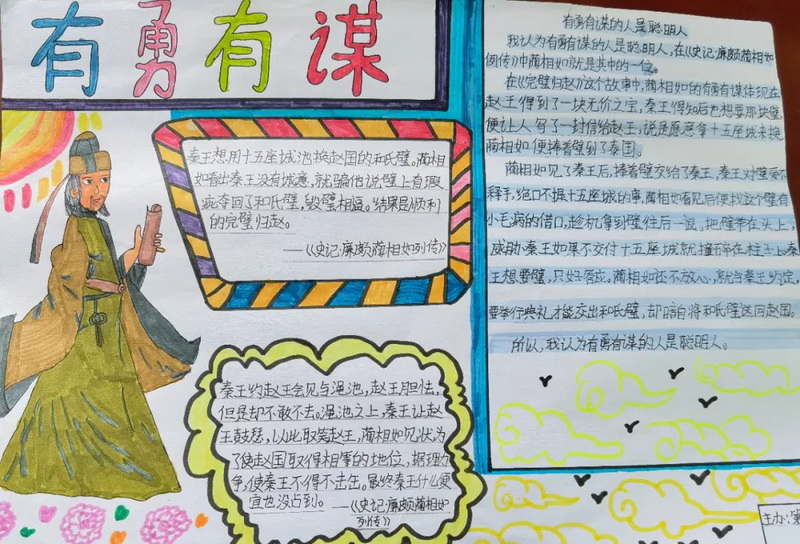 有勇有谋
秦王想用十五座城池换赵国的和氏璧。蔺相
如看出秦王没有城意,就骗他说璧上有瑕
疵夺回了和氏璧,毁璧相逼。结果是顺利
的完璧归赵。
——《史记·廉颇蔺相如列传》
秦王约赵王会见与渑池,赵王胆怯,
但是却不敢不去。渑池之上,秦王让赵
王鼓瑟,以此取笑赵王,蔺相如见状,为
了使赵国取得相等的地位,据理力
争,使秦王不得不击缶。最终秦王什么便
宜也没占到。
——《史记·廉颇蔺相如
列传》
有勇有谋的人是聪明人
我认为有勇有谋的人是聪明人,在《史记·廉颇蔺相如
列传》中蔺相如就是其中的一位。
在《完璧归赵》这个故事中,蔺相如的有勇有谋体现在
赵王得到了一块无价之宝,秦王得知后也想要那块璧,
便让人写了一封信给赵王,说是愿意拿十五座城来换
蔺相如便捧着璧到了秦国。
蔺相如见了秦王后,捧着璧交给了秦王,秦王对璧爱不
释手,绝口不提十五座城的事,蔺相如看见后便找这个璧有
小毛病的借口,趁机拿到璧往后一退,把璧举在头上,
威胁秦王如果不交付十五座城就撞碎在柱子上秦
王想要璧,只好答应。蔺相如还不放心,就与秦王约定,
要举行典礼才能交出和氏璧,却暗自将和氏璧送回赵国。
所以,我认为有勇有谋的人是聪明人。
主办: